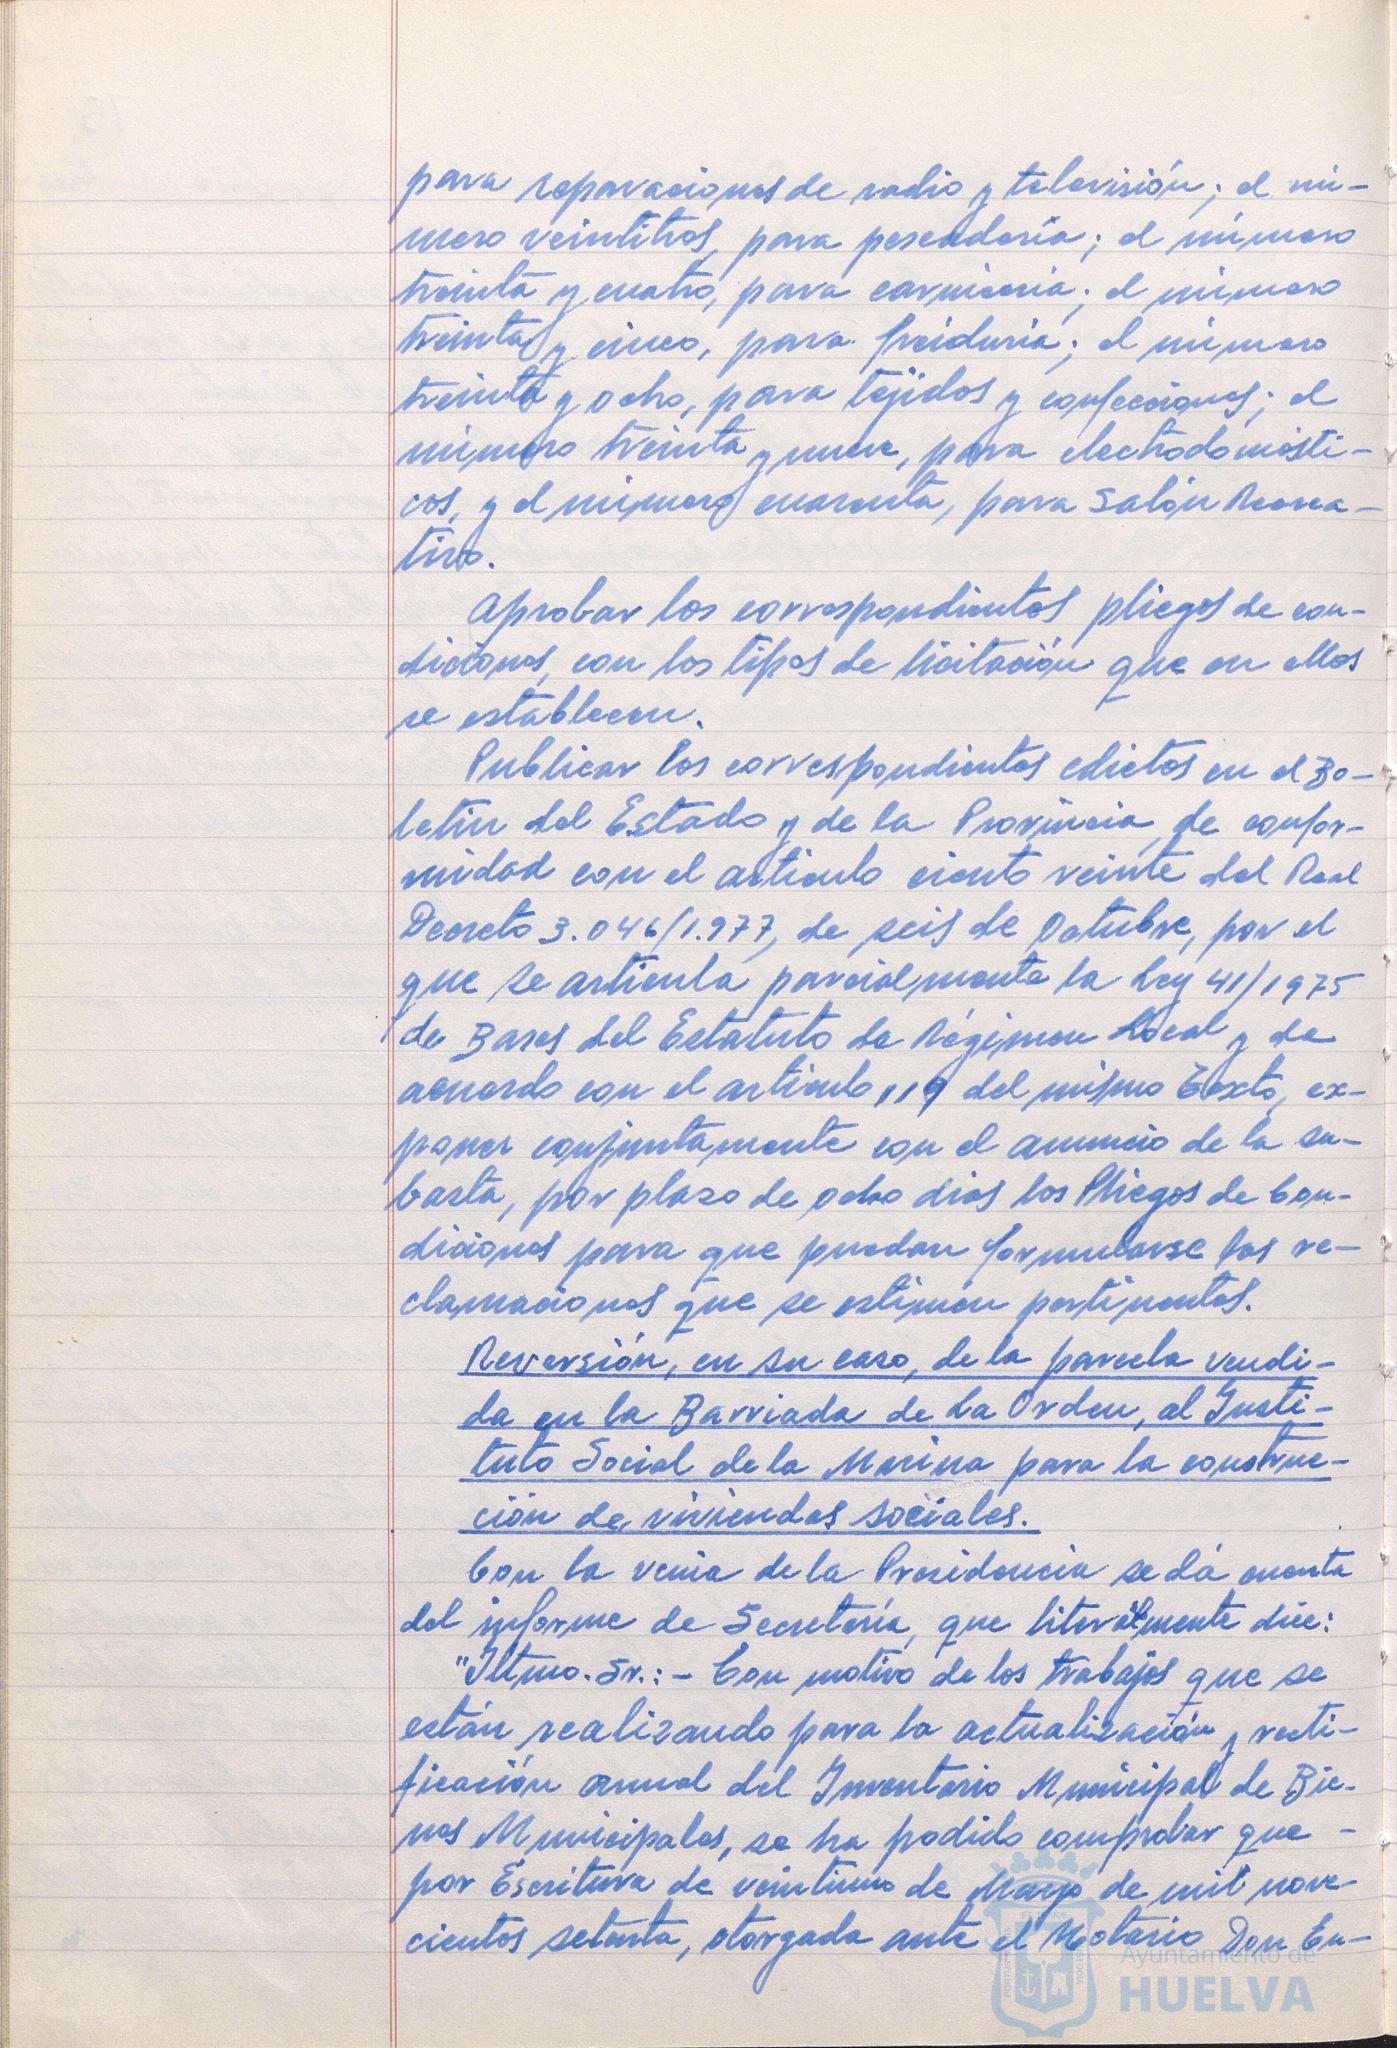 para reparaciones de radio y televisión; el nú-
mero veintitres, para pescadería; el número
treinta y cuatro, para carnicería; el número
treinta y cinco, para freiduría; el número
treinta y ocho, para tejidos y confecciones; el
número treinta y nueve, para electrodomésti-
cos, y el número cuarenta, para Salón Recrea-
tivo.
Aprobar los correspondientes pliegos de con-
diciones, con los tipos de licitación que en ellos
se establecen.
Publicar los correspondientes edictos en el Bo-
letín del Estado y de la Provincia, de confor-
midad con el artículo ciento veinte del Real
Decreto 3.046/1.977, de seis de Octubre, por el
que se articula parcialmente la Ley 41/1975
de Bases del Estatuto de Régimen Local y de
acuerdo con el artículo 119 del mismo Texto, ex-
poner conjuntamente con el anuncio de la su-
basta, por plazo de ocho días los Pliegos de Con-
diciones para que puedan formularse las re-
clamaciones que se estimen pertinentes.
Reversión, en su caso, de la parcela vendi-
da en la Barriada de La Orden, al Insti-
tuto Social de la Marina para la construc-
ción de viviendas sociales.
Con la venia de la Presidencia se dá cuenta
del informe de Secretaría, que literalmente dice:
"Iltmo. Sr.:- Con motivo de los trabajos que se
están realizando para la actualización y recti-
ficación anual del Inventario Municipal de Bie-
nes Municipales, se ha podido comprobar que -
por Escritura de veintiuno de Mayo de mil nove-
cientos setenta, otorgada ante el Notario Don En-
Ayuntamiento de
HUELVA